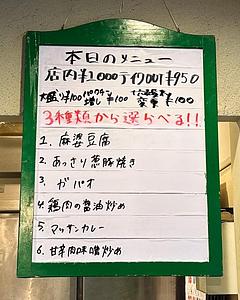 本日のメニュー
店内¥1000 テイクOUT ¥950
大盛り¥100 増し¥100 変更¥100
3種類から選らべる!!
1. 麻婆豆腐
2. あっさり葱豚焼き
3. ガパオ
4. 鶏肉の醤油炒め
5. マッサンカレー
6. 甘辛肉味噌炒め